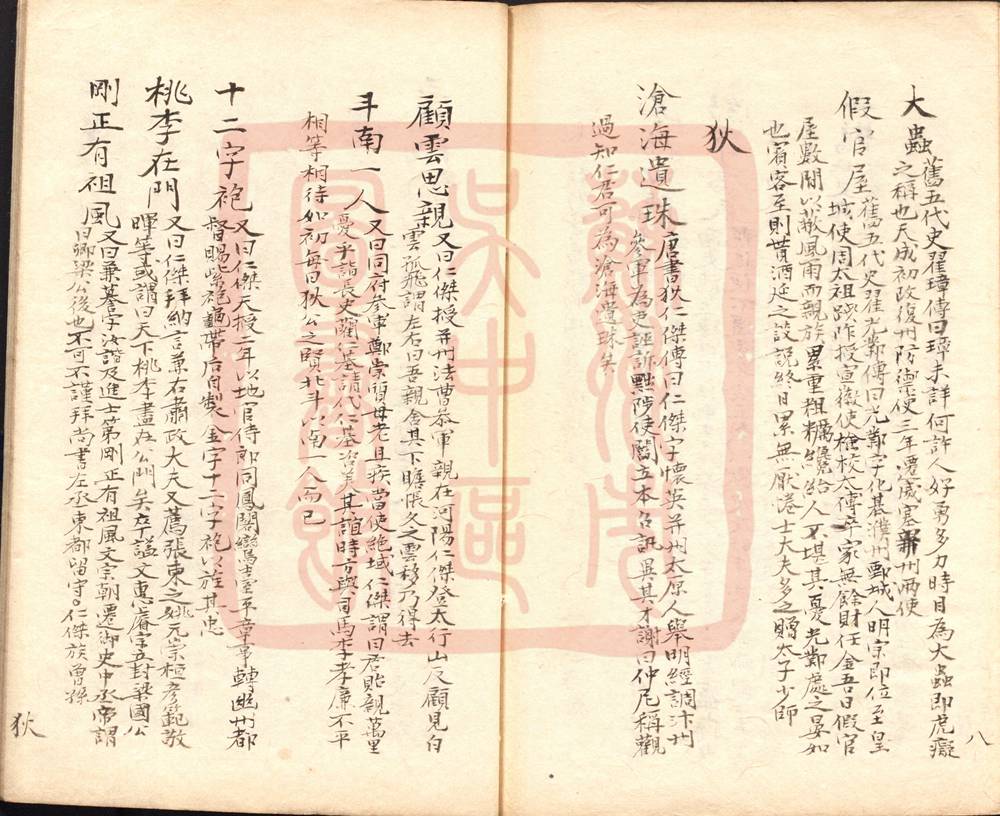 八
大蟲 舊五代史翟璋傳曰璋未詳何許人好勇多力時目為大蟲即虎癡
之稱也天成初改復州防禦使三年遷威塞新州兩使
假官屋 舊五代史翟光鄴傳曰光鄴字化基濮州鄄城人明宗即位至皇
城使周太祖踐阼授宣徽使檢校太傅卒家無餘財任金吾日假官
屋數間以蔽風雨而親族累重粗糲纔給人不堪其憂光鄴處之晏如
也賓客至則貰酒延之談說終日累無厭倦士大夫多之贈太子少師
狄
滄海遺珠 唐書狄仁傑傳曰仁傑字懷英并州太原人舉明經調汴州
參軍為吏誣訴黜陟使閻立本召訊異其才謝曰仲尼稱觀
過知仁君可為滄海遺珠矣
顧雲思親 又曰仁傑授并州法曹參軍親在河陽仁傑登太行山反顧見白
雲孤飛謂左右曰吾親舍其下瞻悵久之雲移乃得去
斗南一人 又曰同府參軍鄭崇質母老且疾當使絕域仁傑謂曰君貽親萬里
憂乎詣長史藺仁基請代仁基咨美其誼時方與司馬李孝廉不平
相等相待如初每曰狄公之賢北斗以南一人而已
十二字袍 又曰仁傑天授二年以地官侍郎同鳳閣鸞臺平章事轉幽州都
督賜紫袍龜帶后自製金字十二字袍以旌其忠
桃李在門 又曰仁傑拜納言兼右肅政大夫又薦張柬之姚元崇桓彥範敬
暉等或謂曰天下桃李盡在公門矣卒謚文惠睿宗立封梁國公
剛正有祖風 又曰兼謩字汝諧及進士第剛正有祖風文宗朝遷御史中丞帝謂
曰卿梁公後也不可不謹拜尚書左丞東都留守○仁傑族曾孫
狄